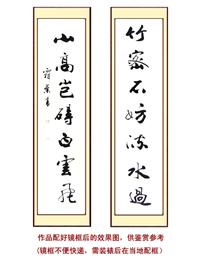 竹密不妨流水過
山高豈礙白雲飛
作品配好镜框后的效果图，供鉴赏参考
(镜框不便快递，需装裱后在当地配框)